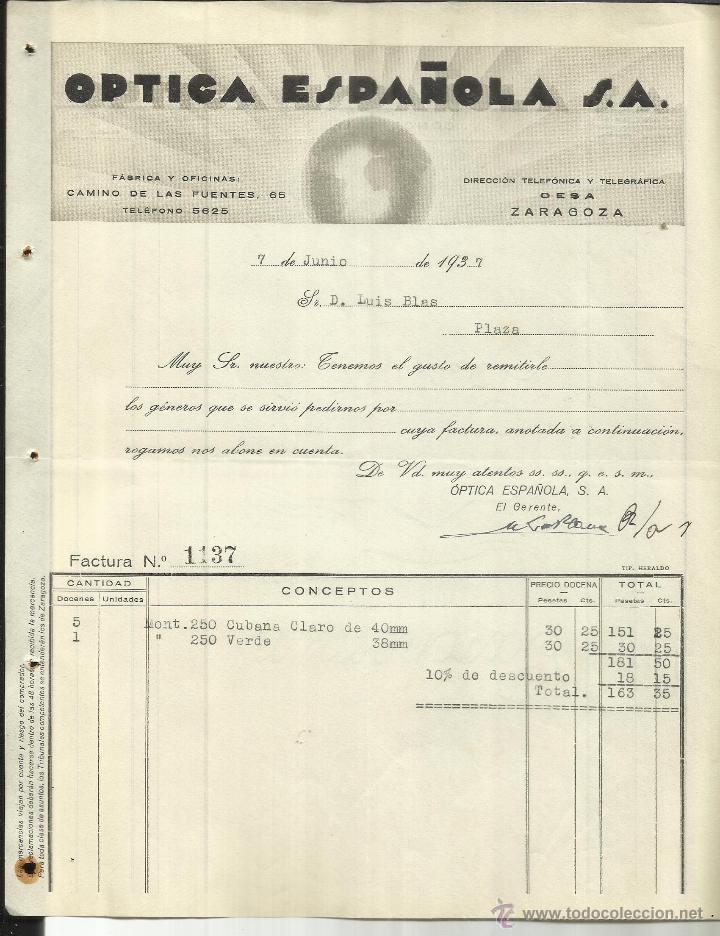 OPTICA ESPAÑOLA S.A.
FÁBRICA Y OFICINAS:
CAMINO DE LAS FUENTES, 65
TELÉFONO 5625
DIRECCIÓN TELEFÓNICA Y TELEGRÁFICA
OESA
ZARAGOZA
7 de Junio de 1937
Sr. D. Luis Blas
Plaza
Muy Sr. nuestro: Tenemos el gusto de remitirle
los géneros que se sirvió pedirnos por
cuya factura, anotada a continuación,
rogamos nos abone en cuenta.
De Vd. muy atentos ss. ss., q. e. s. m.,
ÓPTICA ESPAÑOLA, S. A.
El Gerente,
Factura N.º 1137
TIP. HERALDO
CANTIDAD CONCEPTOS PRECIO DOCENA TOTAL
Docenes Unidades Pesetas Cts. Pesetas Cts.
5 Mont. 250 Cubana Claro de 40mm 30 25 151 25
1 " 250 Verde 38mm 30 25 30 25
181 50
10% de descuento 18 15
Total. 163 35
Las mercancías viajan por cuenta y riesgo del comprador.
Las reclamaciones deberán hacerse dentro de las 48 horas de recibida la mercancía.
Para toda clase de asuntos, los Tribunales competentes se entenderán los de Zaragoza.
www.todocoleccion.net